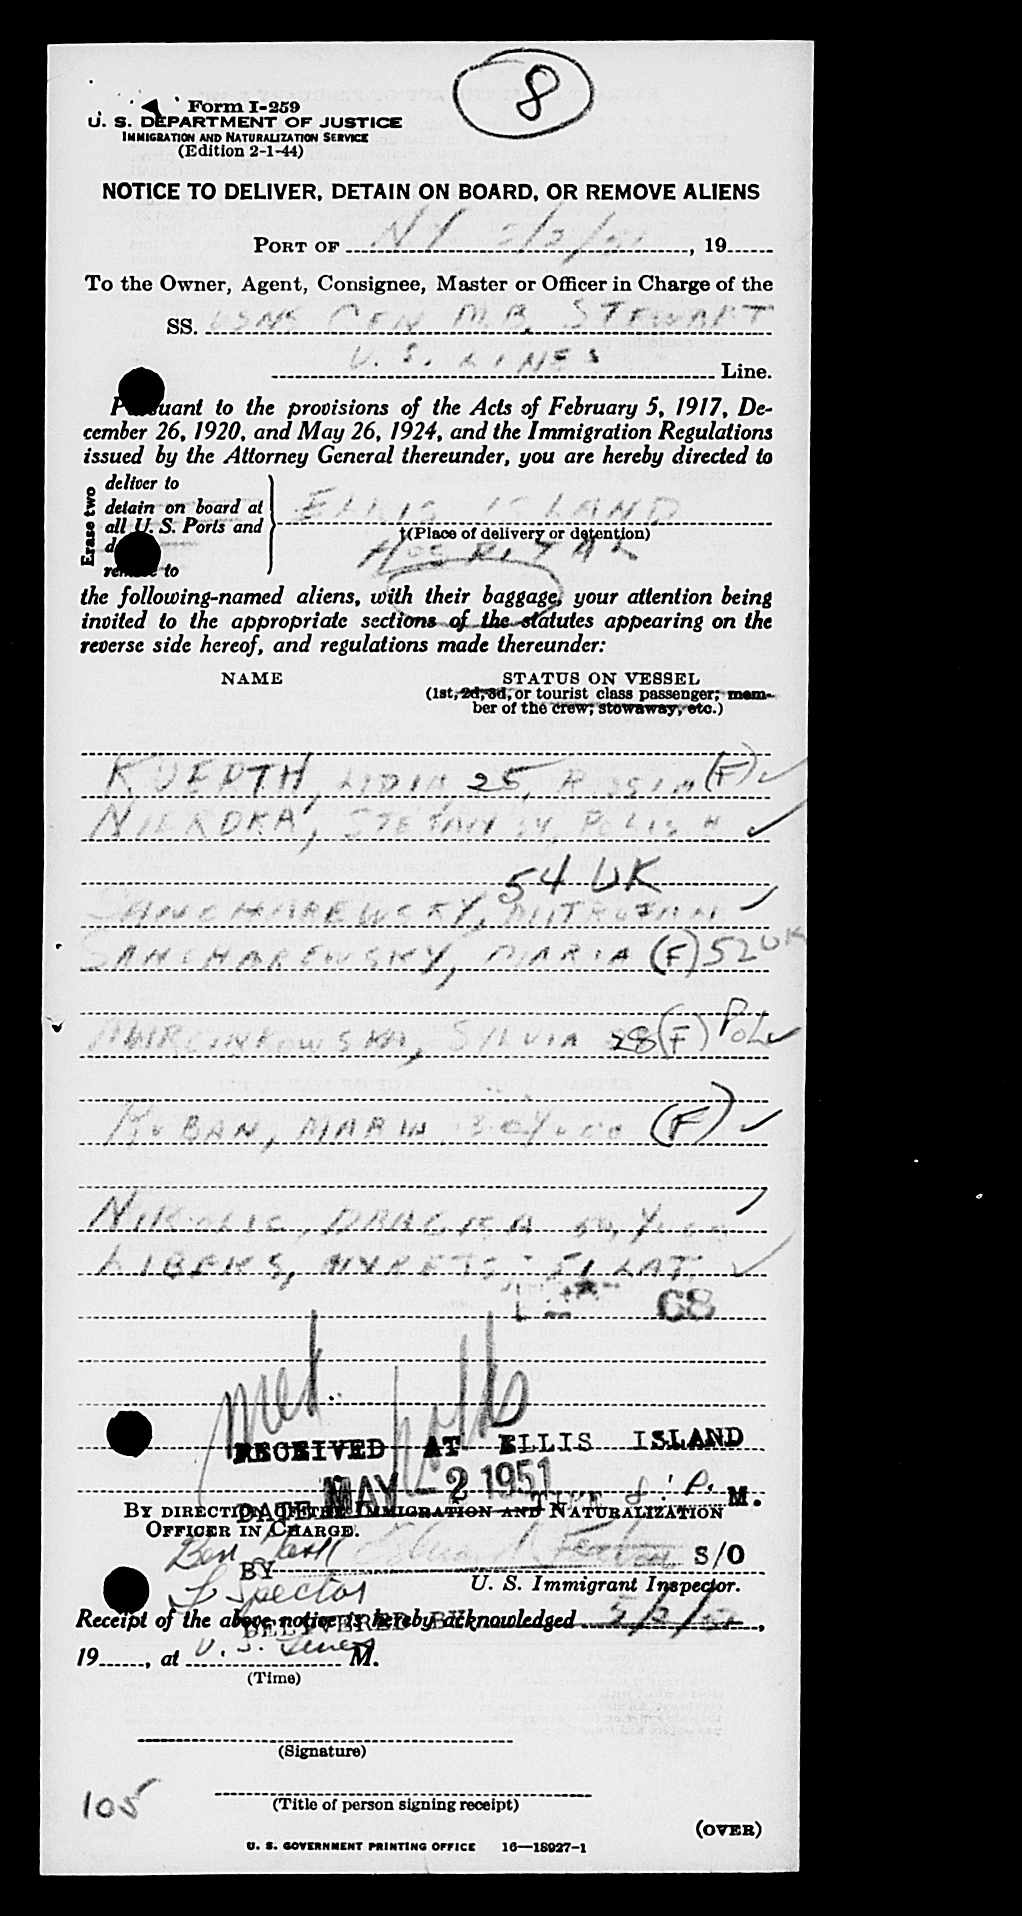 8
Form I-259
U. S. DEPARTMENT OF JUSTICE
IMMIGRATION AND NATURALIZATION SERVICE
(Edition 2-1-44)
NOTICE TO DELIVER, DETAIN ON BOARD, OR REMOVE ALIENS
PORT OF NY 5/2/51, 19
To the Owner, Agent, Consignee, Master or Officer in Charge of the
SS. USNS GEN M.B. STEWART
U.S. LINES Line.
Pursuant to the provisions of the Acts of February 5, 1917, De-
cember 26, 1920, and May 26, 1924, and the Immigration Regulations
issued by the Attorney General thereunder, you are hereby directed to
Erase two
deliver to
detain on board at
all U. S. Ports and
remove to
ELLIS ISLAND
†(Place of delivery or detention)
HOSPITAL
the following-named aliens, with their baggage, your attention being
invited to the appropriate sections of the statutes appearing on the
reverse side hereof, and regulations made thereunder:
NAME STATUS ON VESSEL
(1st, 2d, 3d, or tourist class passenger; mem-
ber of the crew; stowaway, etc.)
KUERTH, LIDIA 25, RUSSIA (F) ✓
STEFAN POLISH ✓
54 UK
SANCHAREWSKY, MITROFAN ✓
SANCHAREWSKY, MARIA (F) 52 UK
MARCINKOWSKA, SYLVIA 28 (F) POL ✓
KUBAN, MARIA (F) ✓
NIKOLIC, ✓
LIBEKS, 51 LAT. ✓
68
Med holds
RECEIVED AT ELLIS ISLAND
DATE MAY -2 1951 TIME P. M.
BY DIRECTION OF THE IMMIGRATION AND NATURALIZATION
OFFICER IN CHARGE.
Ben
BY S/O
U. S. Immigrant Inspector.
Spector
Receipt of the above notice is hereby acknowledged 5/2/51,
DELIVERED BY
19, at U.S. Lines M.
(Time)
(Signature)
105
(Title of person signing receipt)
(OVER)
U. S. GOVERNMENT PRINTING OFFICE 16—18927-1